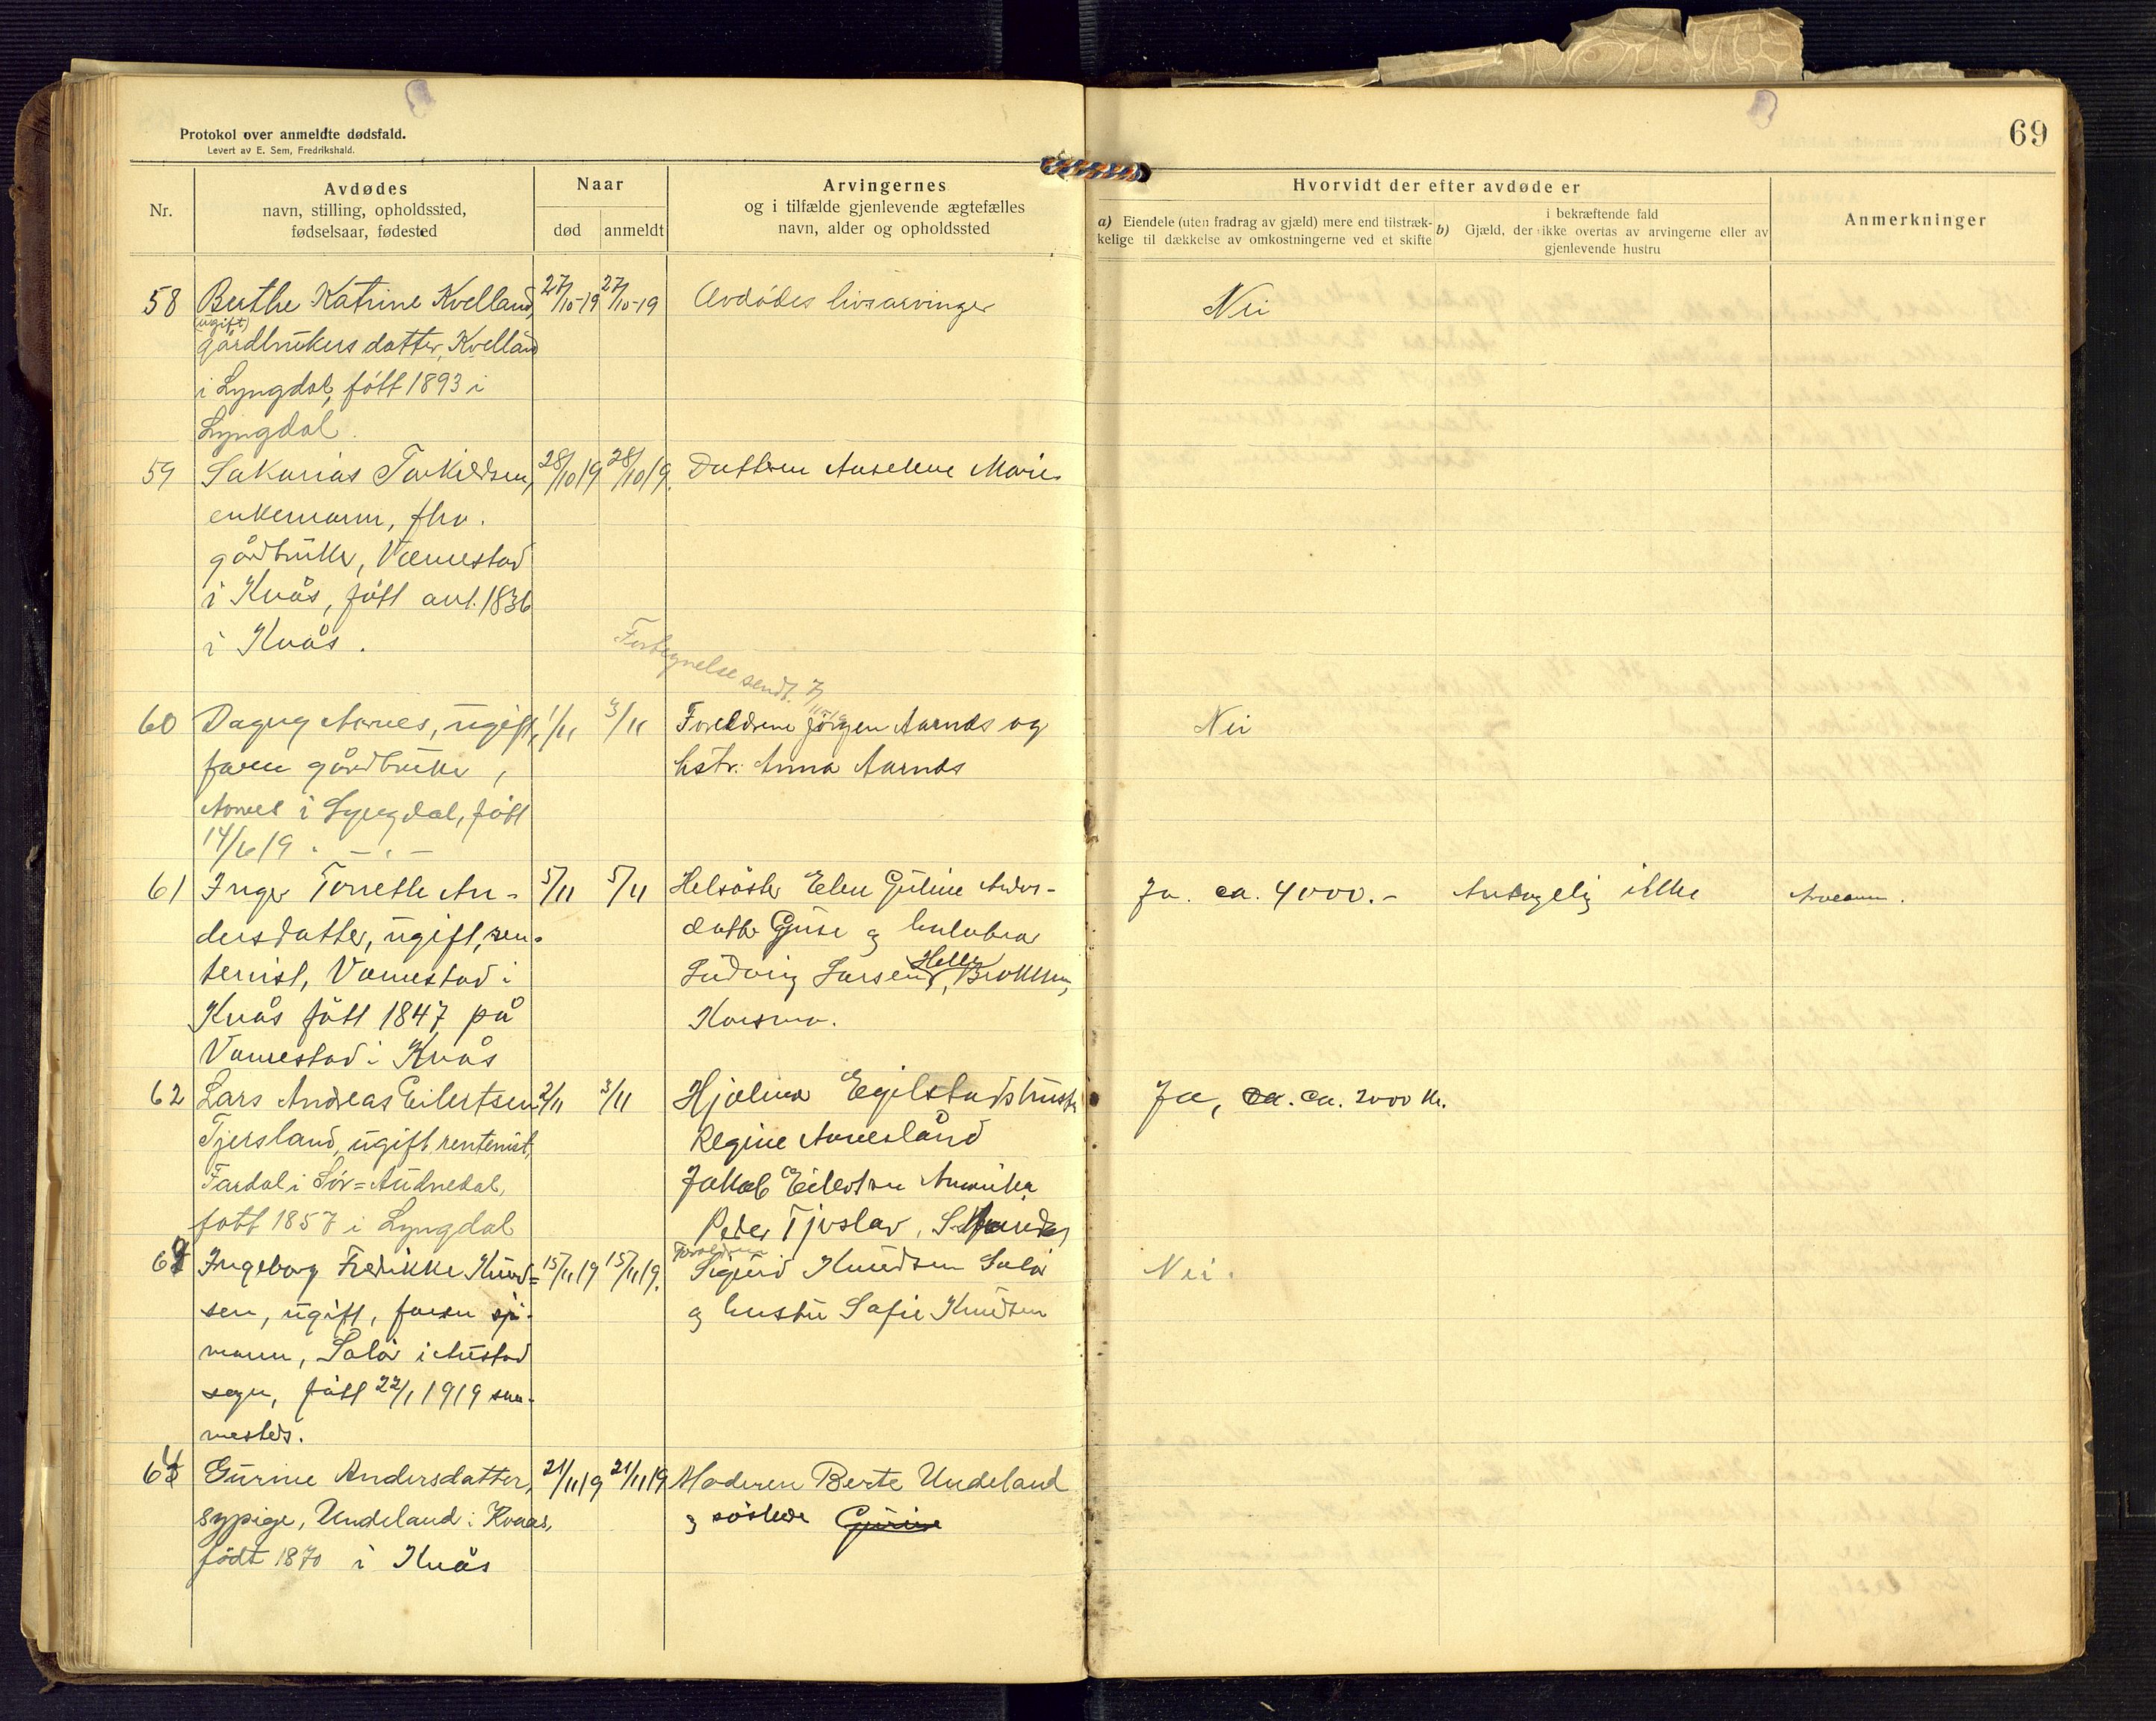 Protokol over anmeldte dødsfald.
Levert av E. Sem, Fredrikshald.
69
Nr.
Avdødes
navn, stilling, opholdssted,
fødselsaar, fødested
Naar
død
anmeldt
Arvingernes
og i tilfælde gjenlevende ægtefælles
navn, alder og opholdssted
Hvorvidt der efter avdøde er
a) Eiendele (uten fradrag av gjæld) mere end tilstræk-
kelige til dækkelse av omkostningerne ved et skifte
i bekræftende fald
b) Gjæld, der ikke overtas av arvingerne eller av
gjenlevende hustru
Anmerkninger
58 Berthe Katrine Kvelland, 27/10-19 27/10-19 Avdødes livsarvinger Nei
(ugift)
gårdbrukers datter, Kvelland
i Lyngdal, født 1893 i
Lyngdal.
59 Sakarias Torkildsen, 28/10 19 28/10 19. Datteren Marie
enkemann, fhv.
gårdbruker, Vemestad
i Kvås, født ant. 1836
i Kvås.
Fortegnelse sendt. 7/11-19
60 Dagny Aarnes, ugift, 1/11 3/11 Foreldrene Jörgen Aarnes og Nei
faren gårdbruker,
hstr. Anna Aarnes
Aarnes i Lyngdal, født
14/6 19. — " —
61 Inger Tonette An- 5/11 5/11 Helsöster Elen Guline Anders- Ja. ca. 4000.- Antagelig ikke
dersdatter, ugift, ren-
datter og halvbror
ternist, Vemestad i
Ludvig Larsen Helle,
Kvås født 1847 på
Vemestad i Kvås
62 Lars Andreas Eilertsen 2/11 3/11 Hjalmar Egilstad Ja, ca. ca. 2000 kr.
Tjersland, ugift, rentenist,
Regine
Fardal i Sör=Audnedal,
Jakob Eilertsen Amerika
født 1857 i Lyngdal
Peder
63 Ingeborg Fredrikke Knud= 15/11 19 15/11 19. Foreldrene Nei.
Sigurd Knudsen Salör
sen, ugift, faren sjö-
og hustru Safie Knudsen
mann, Salör i Austad
sogn, født 22/1 1919 sam-
mesteds.
64 Gurine Andersdatter, 21/11 19 21/11 19 Moderen Berte Undeland
sypige, Undeland i Kvaas,
og söstre Gurine
født 1870 i Kvås